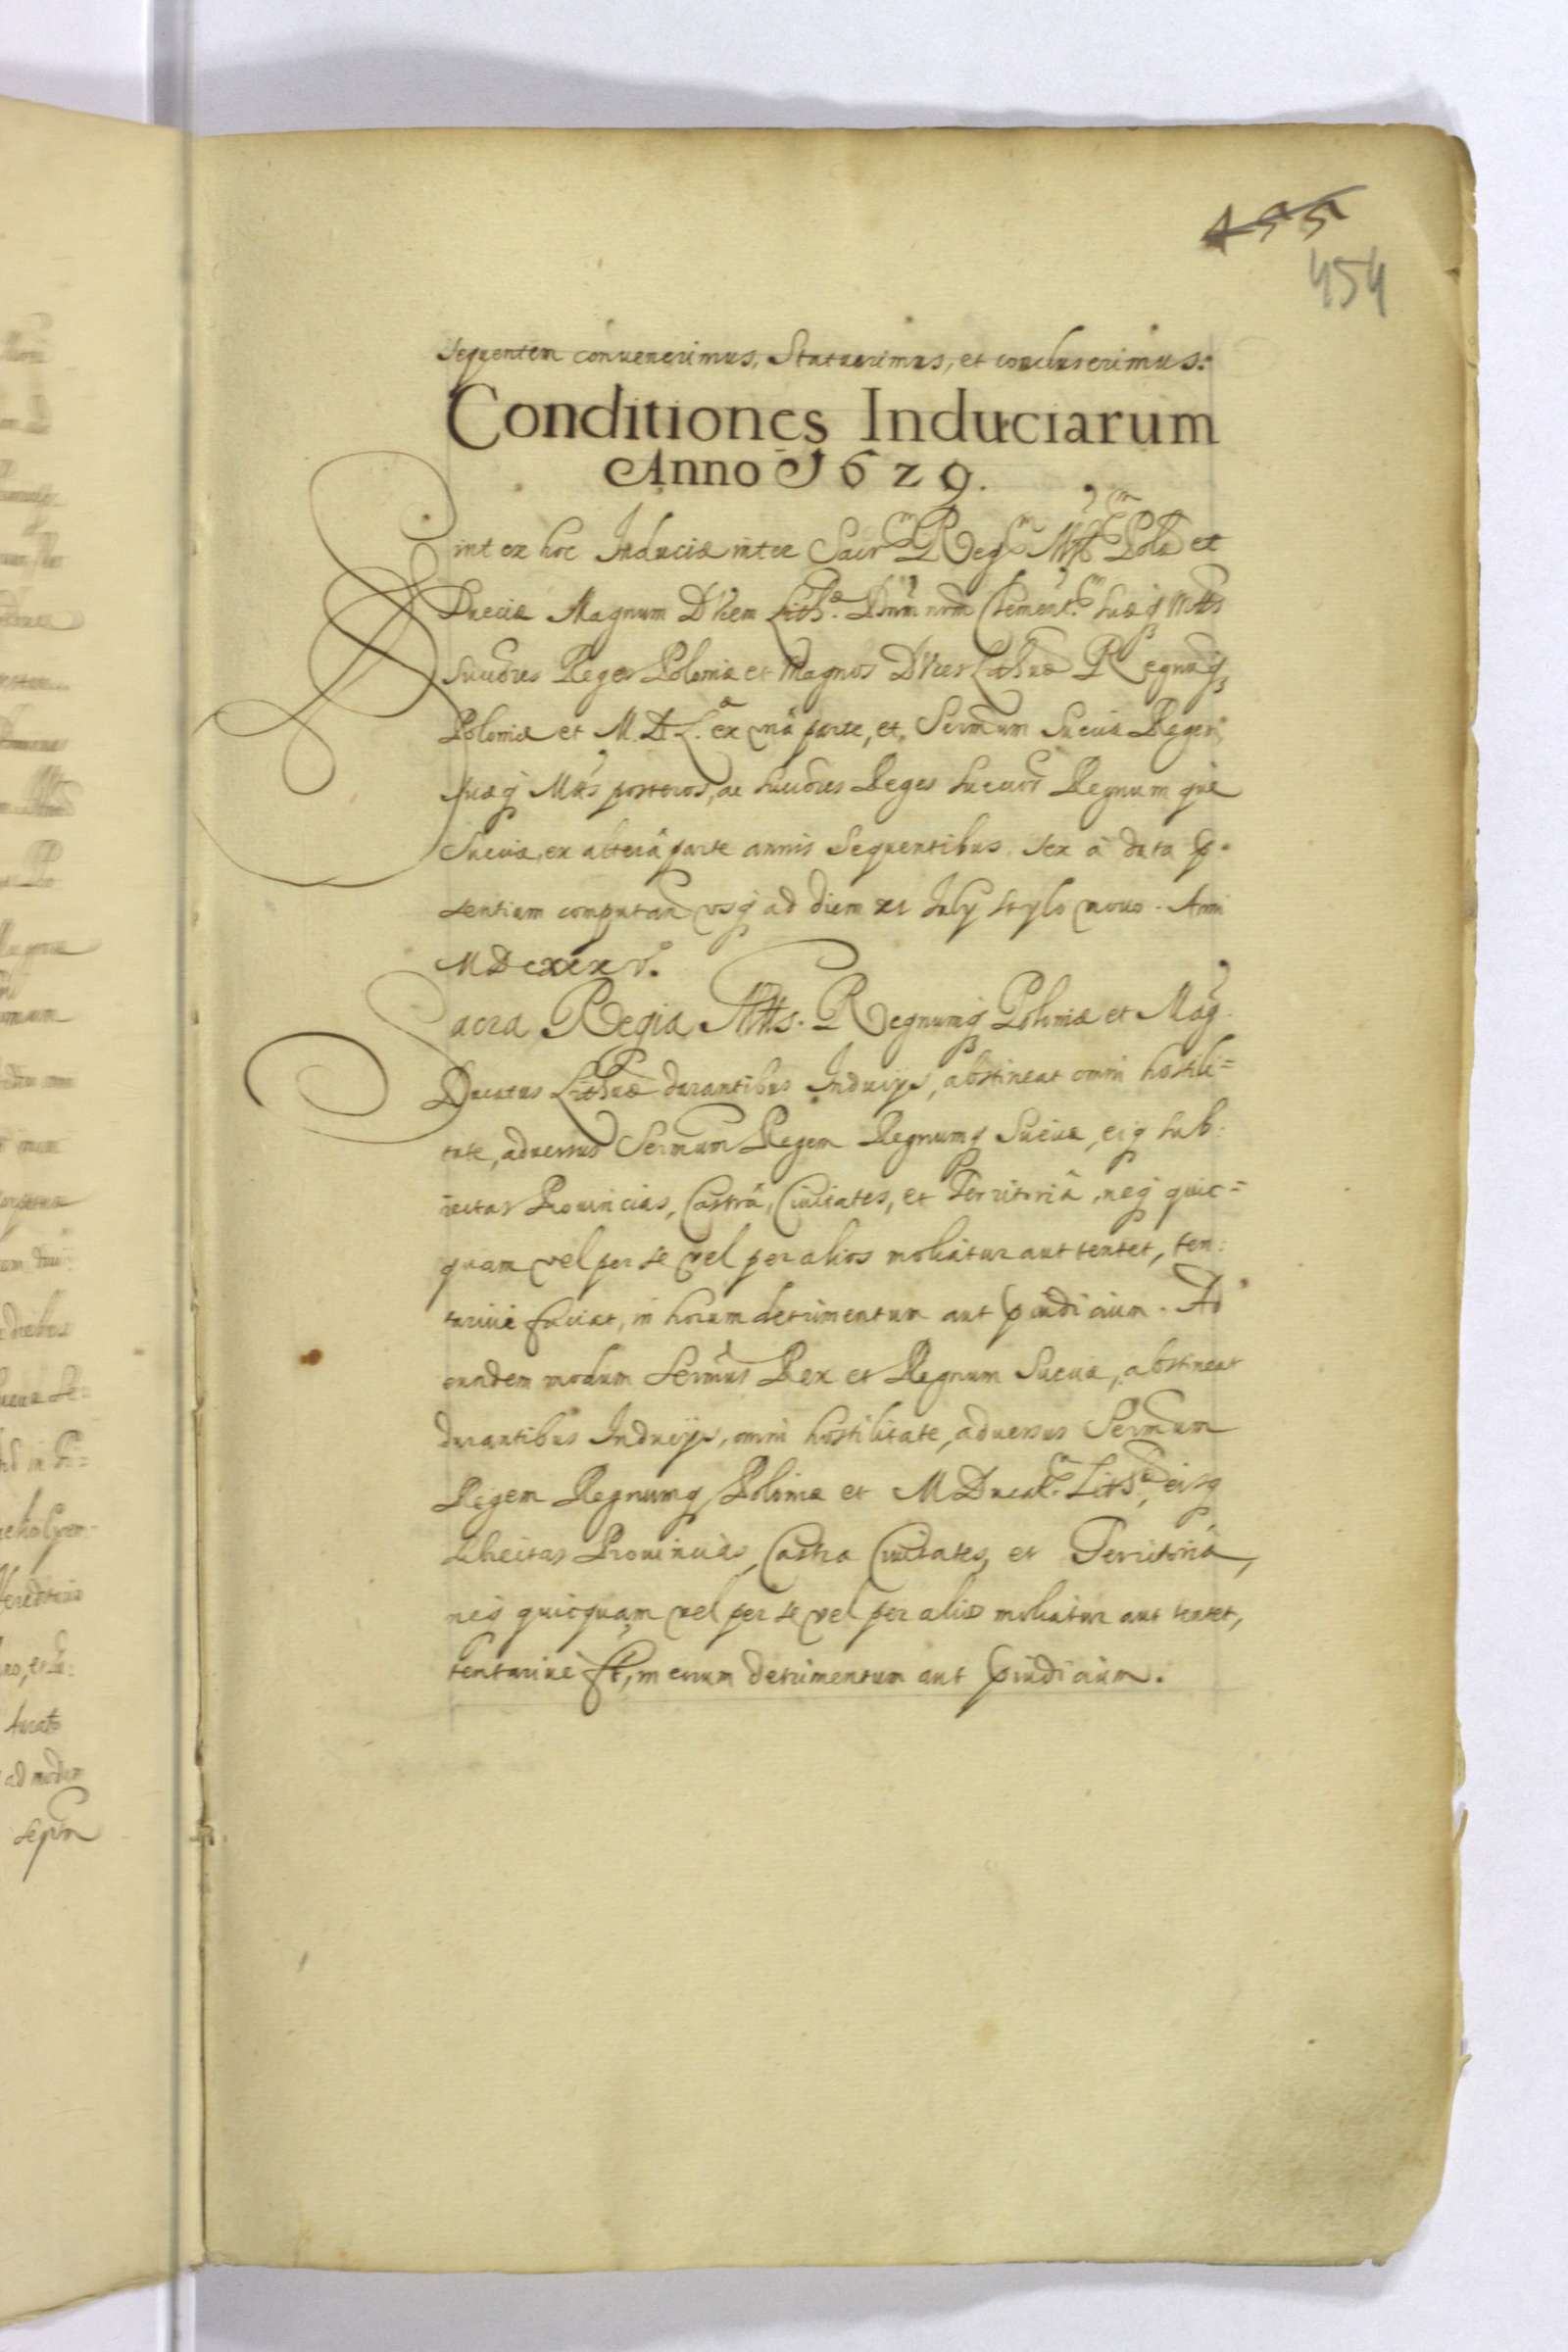 455
454
sequentem convenerimus, Statuerimus, et concluserimus:
Conditiones Induciarum
Anno 1629.
Sint ex hoc Induciæ inter Sacrm Regm Mttm Polæ et
Sueciæ Magnum DVcem Lithæ. Dnūm nrm Clementm Suæq Mttis
succōres Reges Poloniæ et Magnos DVces Lithuæ Regnūq
Poloniæ et M. D. L. ex vnâ parte, et Sermum Sueciæ Regem
suæq Mttis posteros, ac succōres Reges Sueciæ Regnum què
Sueciæ, ex alterâ parte annis sequentibus sex à data p
sentium computand vsq ad diem xi July stylo nouo. Anni
MDcxxxv.
Sacra Regia Mtts. Regnumq Poloniæ et Mag
Ducatus Lithuæ durantibus Inducijs, abstineat omni hostili=
tate, aduersus Sermum Regem Regnumq Sueciæ, eisq sub=
iectas Prouincias, Castrâ, Ciuitates, et Territoriâ, neq quic=
quam vel per se vel per alios moliatur aut tentet, ten=
tariuè faciat, in horum detrimentum aut piudicium. Ad
eundem modum Sermus Rex et Regnum Sueciæ, abstineat
durantibus Inducijs, omni hostilitate, aduersus Sermum
Regem Regnumq Poloniæ et M Ducat. Lithæ, eisq
subiectas Prouincias, Castra Ciuitates, et Territoriâ,
neq quicquam vel per se vel per alios moliatur aut tentet,
tentariuè ft, in eorum detrimentum aut piudicium.